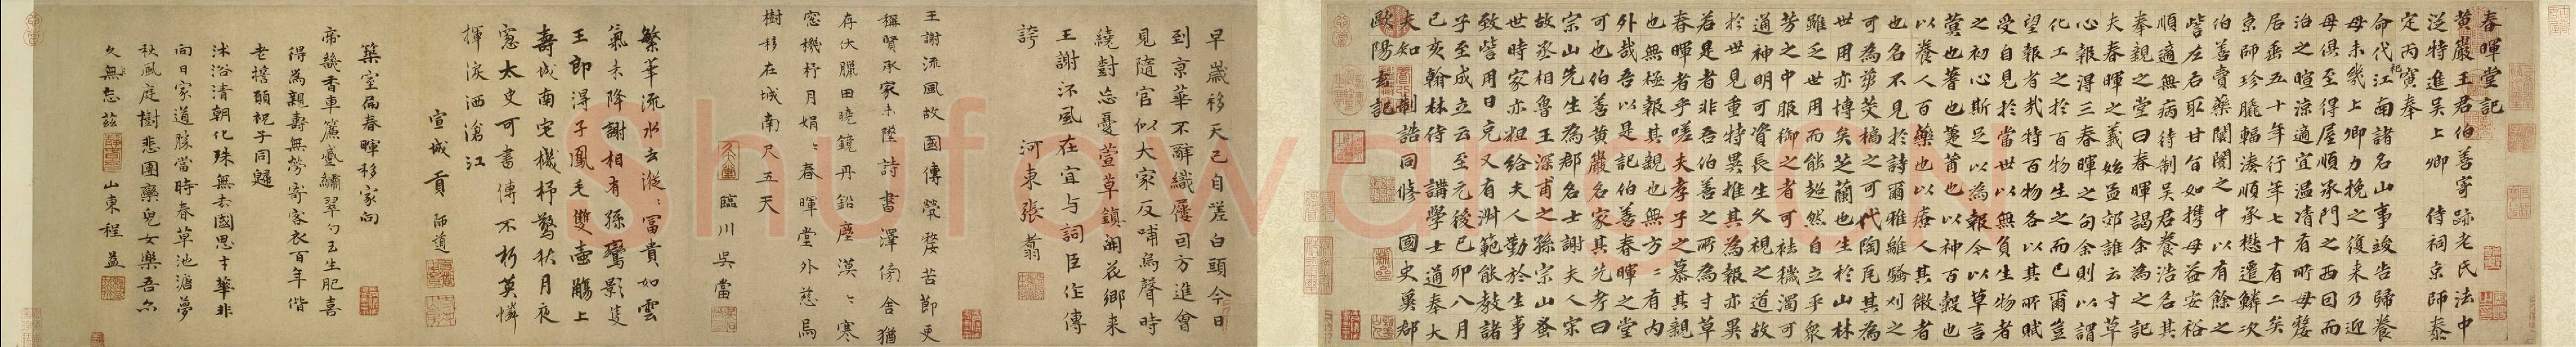 春暉堂記
黃巖王君伯善寄跡老氏法中
泛特進吳上卿 侍祠京師泰
定丙寅奉
命代江南諸名山事竣告歸養
母未幾上卿力挽之復来乃迎
母俱至得屋順承門之西因而
泊之暄涼適宜温凊有所母婺
居垂五十年行年七十有二矣
京師珍膬輻湊順承懋遷鱗次
伯善賣藥闤闠之中以有餘之
訾左右取甘旨如携母益安裕
順適無病待制吴君養浩名其
奉親之堂曰春暉謁余為之記
夫春暉之義始孟郊誰云寸草
心報得三春暉之句余則以謂
化工之於百物生之而已爾豈
望報者㢤特百物各以其所賦
受自見於當世以無負生物者
之初心斯足以為報今以草言
蓂也蓍也蓬莆也以神百穀也
以養人百藥也以療人其微者
也名不見於詩爾雅離騷刈之
可為蒭茭橘之可代陶瓦其為
世用亦博矣芝蘭也生於山林
雖乏世用而能超然自立乎衆
芳之中服御之者可祛穢濁可
通神明可資長生久視之道故
於世見重特異推其為報亦異
若是者非吾伯善之所為寸草
春暉者乎嗟夫孝子之慕其親
也無極報其親也無方二有内
外㢤吾以是記伯善春暉之堂
可也伯善黃巖名家其先考曰
宗山先生為郡名士謝夫人宗
故丞相魯王深甫之孫宗山蚤
世時家亦粗給夫人勤於生事
致訾用日充又有淑範能教諸
子至成立云至元後己卯八月
已亥翰林侍 講學士通奉大
夫知 制誥同修 國史冀郡
歐陽玄記
早歲移天已自嗟白頭今日
到京華不辭織屨囘方進會
見隨官似大家反哺烏聲時
繞對忘憂萱草鎮開花鄉来
王謝沠風在宜与詞臣作傳
誇 河東張翥
王謝流風故國傳煢嫠苦節更
稱賢承家未墜詩書澤傍舍猶
存伏臘田曉鏡丹鉛塵漠々寒
窓機杼月娟々春暉堂外慈烏
樹移在城南尺五天
臨川吳當
繁華流水去漇々冨貴如雲
氣未降謝相有孫鸞影隻
王郎得子鳳毛雙壷觴上
壽城南宅機杼驚秋月夜
窓太史可書傳不朽莫憐
揮淚洒滄江
宣城貢 師道
築室扁春暉移家向
帝畿香車簾蹙繡翠勺玉生肥喜
得為親壽無勞寄客衣百年偕
老擔願祝子同歸
沐浴清朝化殊無去國思才華非
向日家道勝當時春草池塘夢
秋風庭樹悲團欒兒女樂吾尔
久無忘茲 山東程 益
Shufawang